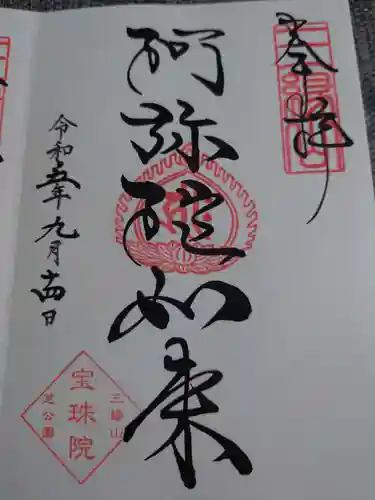 奉拝
阿弥陀如来
令和五年九月十四日
三縁山
宝珠院
芝公園